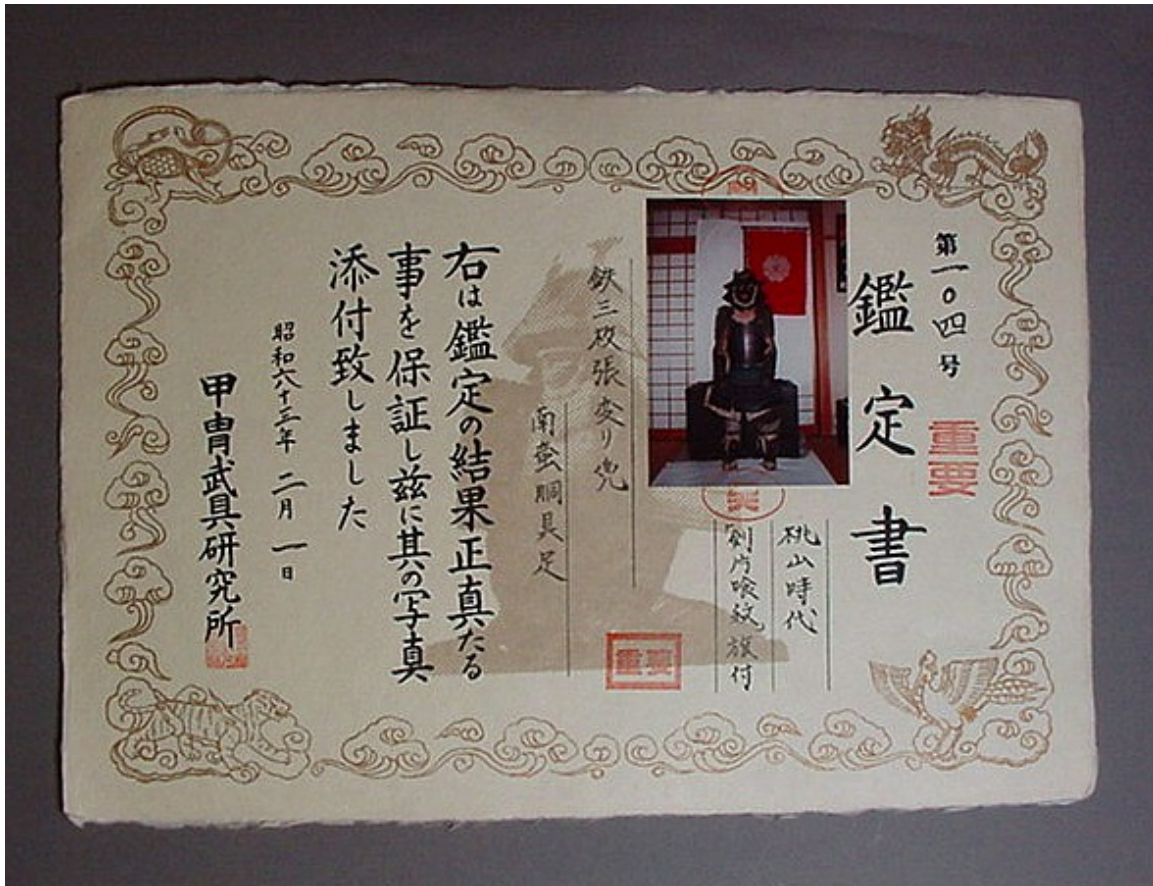 第一〇四号
重要
鑑定書
桃山時代
剣片喰紋旗付
鉄三枚張変り兜
南蛮胴具足
重要
右は鑑定の結果正真たる
事を保証し茲に其の写真
添付致しました
昭和六十三年 二月 一日
甲冑武具研究所